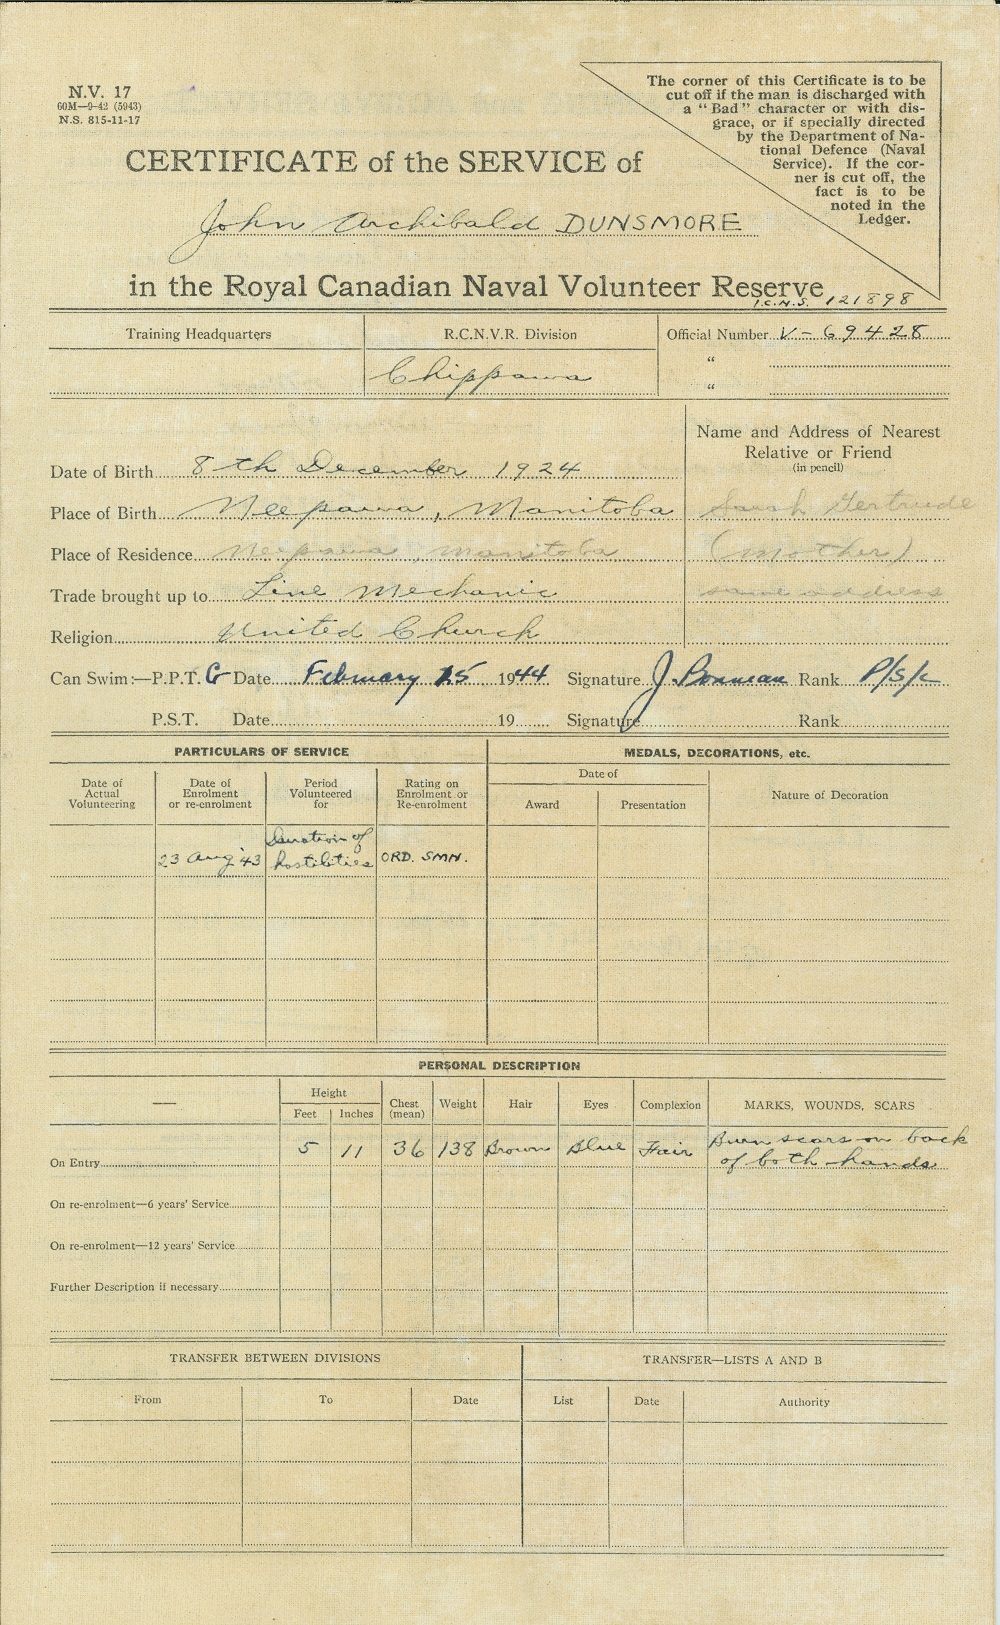 N.V. 17
60M—9-42 (5943)
N.S. 815-11-17
The corner of this Certificate is to be
cut off if the man is discharged with
a “Bad” character or with dis-
grace, or if specially directed
by the Department of Na-
tional Defence (Naval
Service). If the cor-
ner is cut off, the
fact is to be
noted in the
Ledger.
CERTIFICATE of the SERVICE of
John Archibald DUNSMORE
in the Royal Canadian Naval Volunteer Reserve
I.C.N.S. 121898
Training Headquarters
R.C.N.V.R. Division
Chippawa
Official Number V-69428
“
“
Date of Birth 8th December 1924
Place of Birth Neepawa, Manitoba
Place of Residence Neepawa, Manitoba
Trade brought up to Line Mechanic
Religion United Church
Name and Address of Nearest
Relative or Friend
(in pencil)
Sarah Gertrude
(Mother)
same address
Can Swim:—P.P.T. G Date February 15 1944 Signature J. Rank
P.S.T. Date 19 Signature Rank
PARTICULARS OF SERVICE
Date of
Actual
Volunteering
Date of
Enrolment
or re-enrolment
Period
Volunteered
for
Rating on
Enrolment or
Re-enrolment
23 Aug '43
Duration of
hostilities
ORD. SMN.
MEDALS, DECORATIONS, etc.
Date of
Award
Presentation
Nature of Decoration
PERSONAL DESCRIPTION
—
Height
Feet
Inches
Chest
(mean)
Weight
Hair
Eyes
Complexion
MARKS, WOUNDS, SCARS
On Entry 5 11 36 138 Brown Blue Fair Burn scars on back
of both hands
On re-enrolment—6 years' Service
On re-enrolment—12 years' Service
Further Description if necessary
TRANSFER BETWEEN DIVISIONS
From
To
Date
TRANSFER—LISTS A AND B
List
Date
Authority